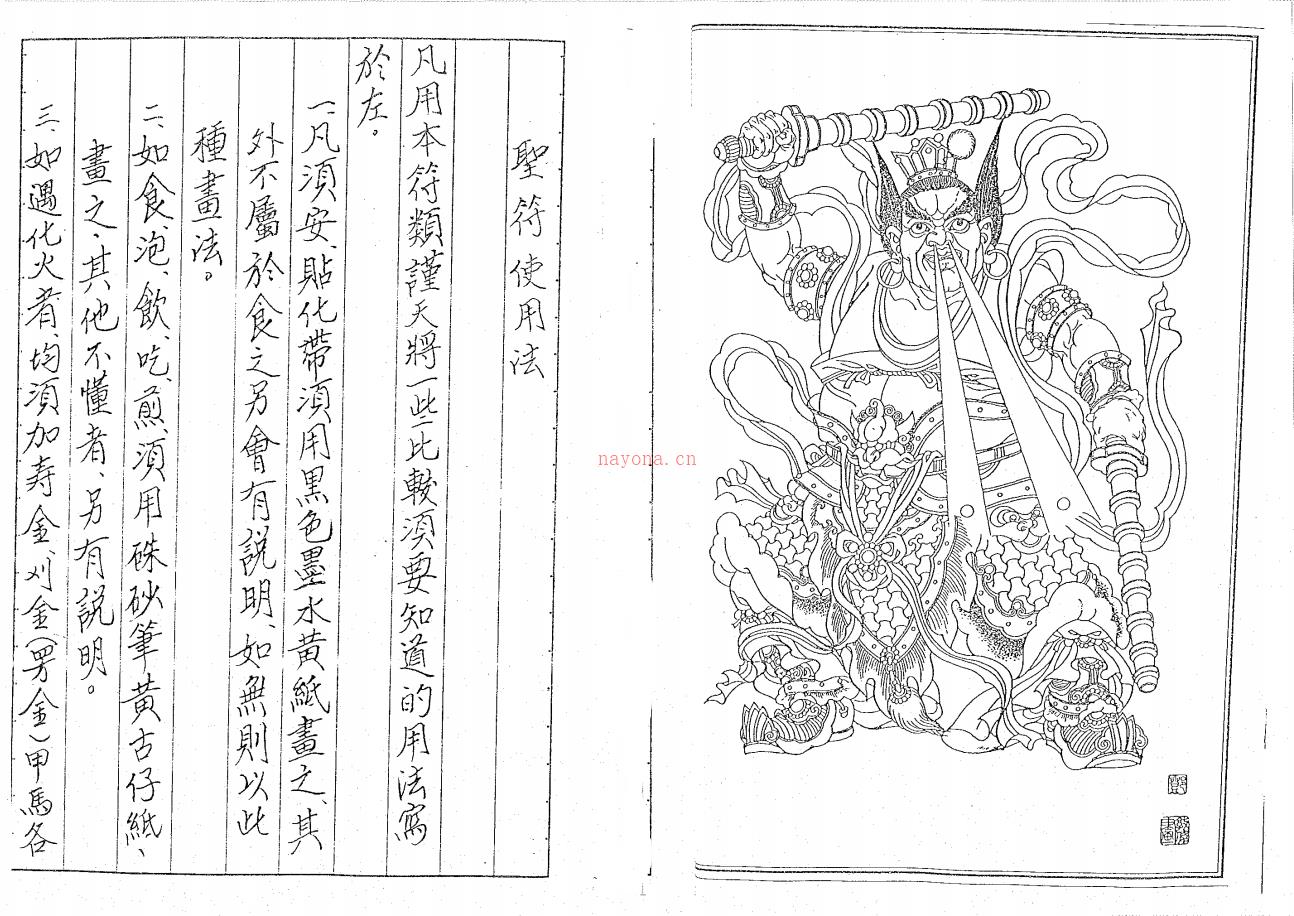 聖符使用法
凡用本符類謹天將一些比較須要知道的用法寫
於左。
一、凡須安、貼化帶須用黑色墨水黃紙畫之、其
外不屬於食之另會有說明、如無則以此
種畫法。
二、如食、泡、飲、吃、煎、須用硃砂筆黃古仔紙、
畫之、其他不懂者、另有說明。
三、如遇化火者、均須加寿金、刈金(男金)甲馬各
nayona.cn